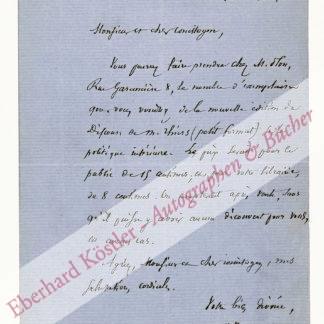 Monsieur et cher concitoyen,
Vous pouvez faire prendre chez M. Plon,
Rue Garancière 8, le nombre d'exemplaires
que vous voudrez de la nouvelle édition du
Discours de M. Thiers (petit format) sur la
politique intérieure. Le prix sera pour le
public de 15 centimes, et pour votre libraire,
de 8 centimes. En après vente, sans
qu'il puisse y avoir aucun découvert pour vous,
en aucun cas.
Agréez, Monsieur et cher concitoyen, mes
salutations cordiales.
Votre bien dévoué,
Eberhard Köstler - Autographen & Bücher